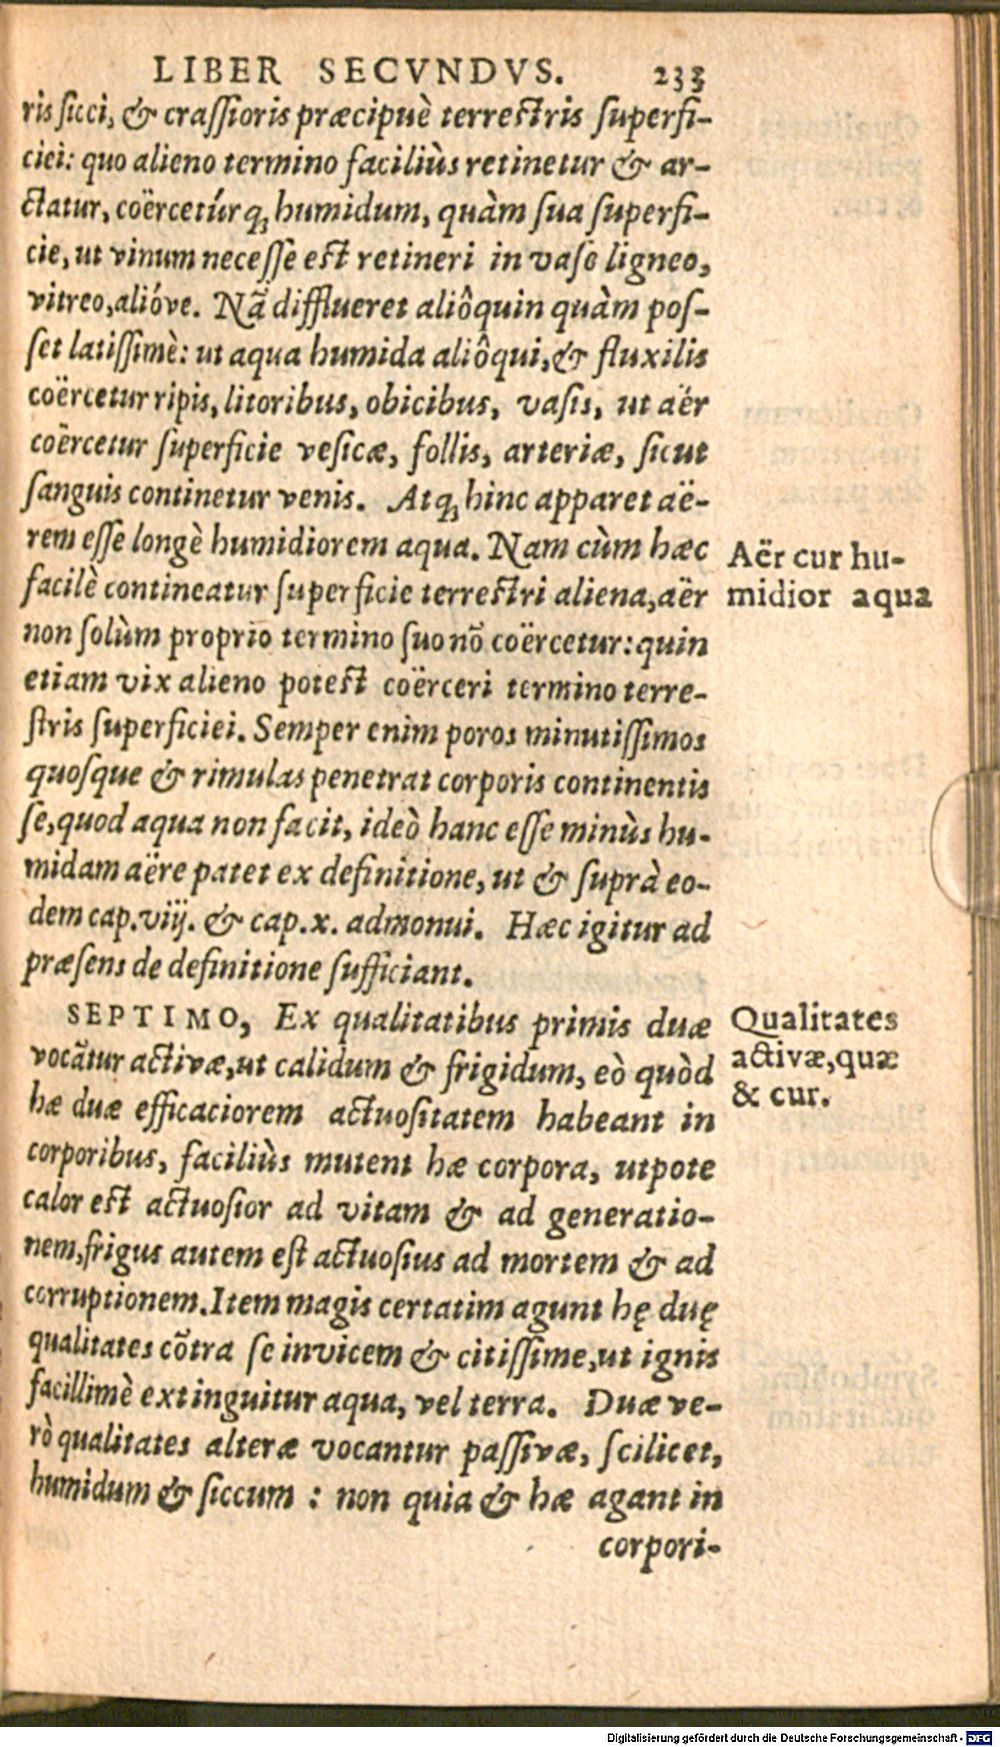 LIBER SECVNDVS. 233
ris sicci, & crassioris præcipuè terrestris superfi-
ciei: quo alieno termino faciliùs retinetur & ar-
ctatur, coërcetúrq; humidum, quàm sua superfi-
cie, ut vinum necesse est retineri in vase ligneo,
vitreo, alióve. Nã difflueret aliôquin quàm pos-
set latissimè: ut aqua humida aliôqui, & fluxilis
coërcetur ripis, litoribus, obicibus, vasis, ut aër
coërcetur superficie vesicæ, follis, arteriæ, sicut
sanguis continetur venis. Atq; hinc apparet aë-
rem esse longè humidiorem aqua. Nam cùm hæc
facilè contineatur superficie terrestri aliena, aër
non solùm proprio termino suo nõ coërcetur: quin
etiam vix alieno potest coërceri termino terre-
stris superficiei. Semper enim poros minutissimos
quosque & rimulas penetrat corporis continentis
se, quod aqua non facit, ideò hanc esse minùs hu-
midam aëre patet ex definitione, ut & suprà eo-
dem cap. viij. & cap. x. admonui. Hæc igitur ad
præsens de definitione sufficiant.
Aër cur hu-
midior aqua
SEPTIMO, Ex qualitatibus primis duæ
vocãtur activæ, ut calidum & frigidum, eò quòd
hæ duæ efficaciorem actuositatem habeant in
corporibus, faciliùs mutent hæ corpora, utpote
calor est actuosior ad vitam & ad generatio-
nem, frigus autem est actuosius ad mortem & ad
corruptionem. Item magis certatim agunt hę duę
qualitates cõtra se invicem & citissime, ut ignis
facillimè extinguitur aqua, vel terra. Duæ ve-
rò qualitates alteræ vocantur passivæ, scilicet,
humidum & siccum : non quia & hæ agant in
corpori-
Qualitates
activæ, quæ
& cur.
Digitalisierung gefördert durch die Deutsche Forschungsgemeinschaft - DFG